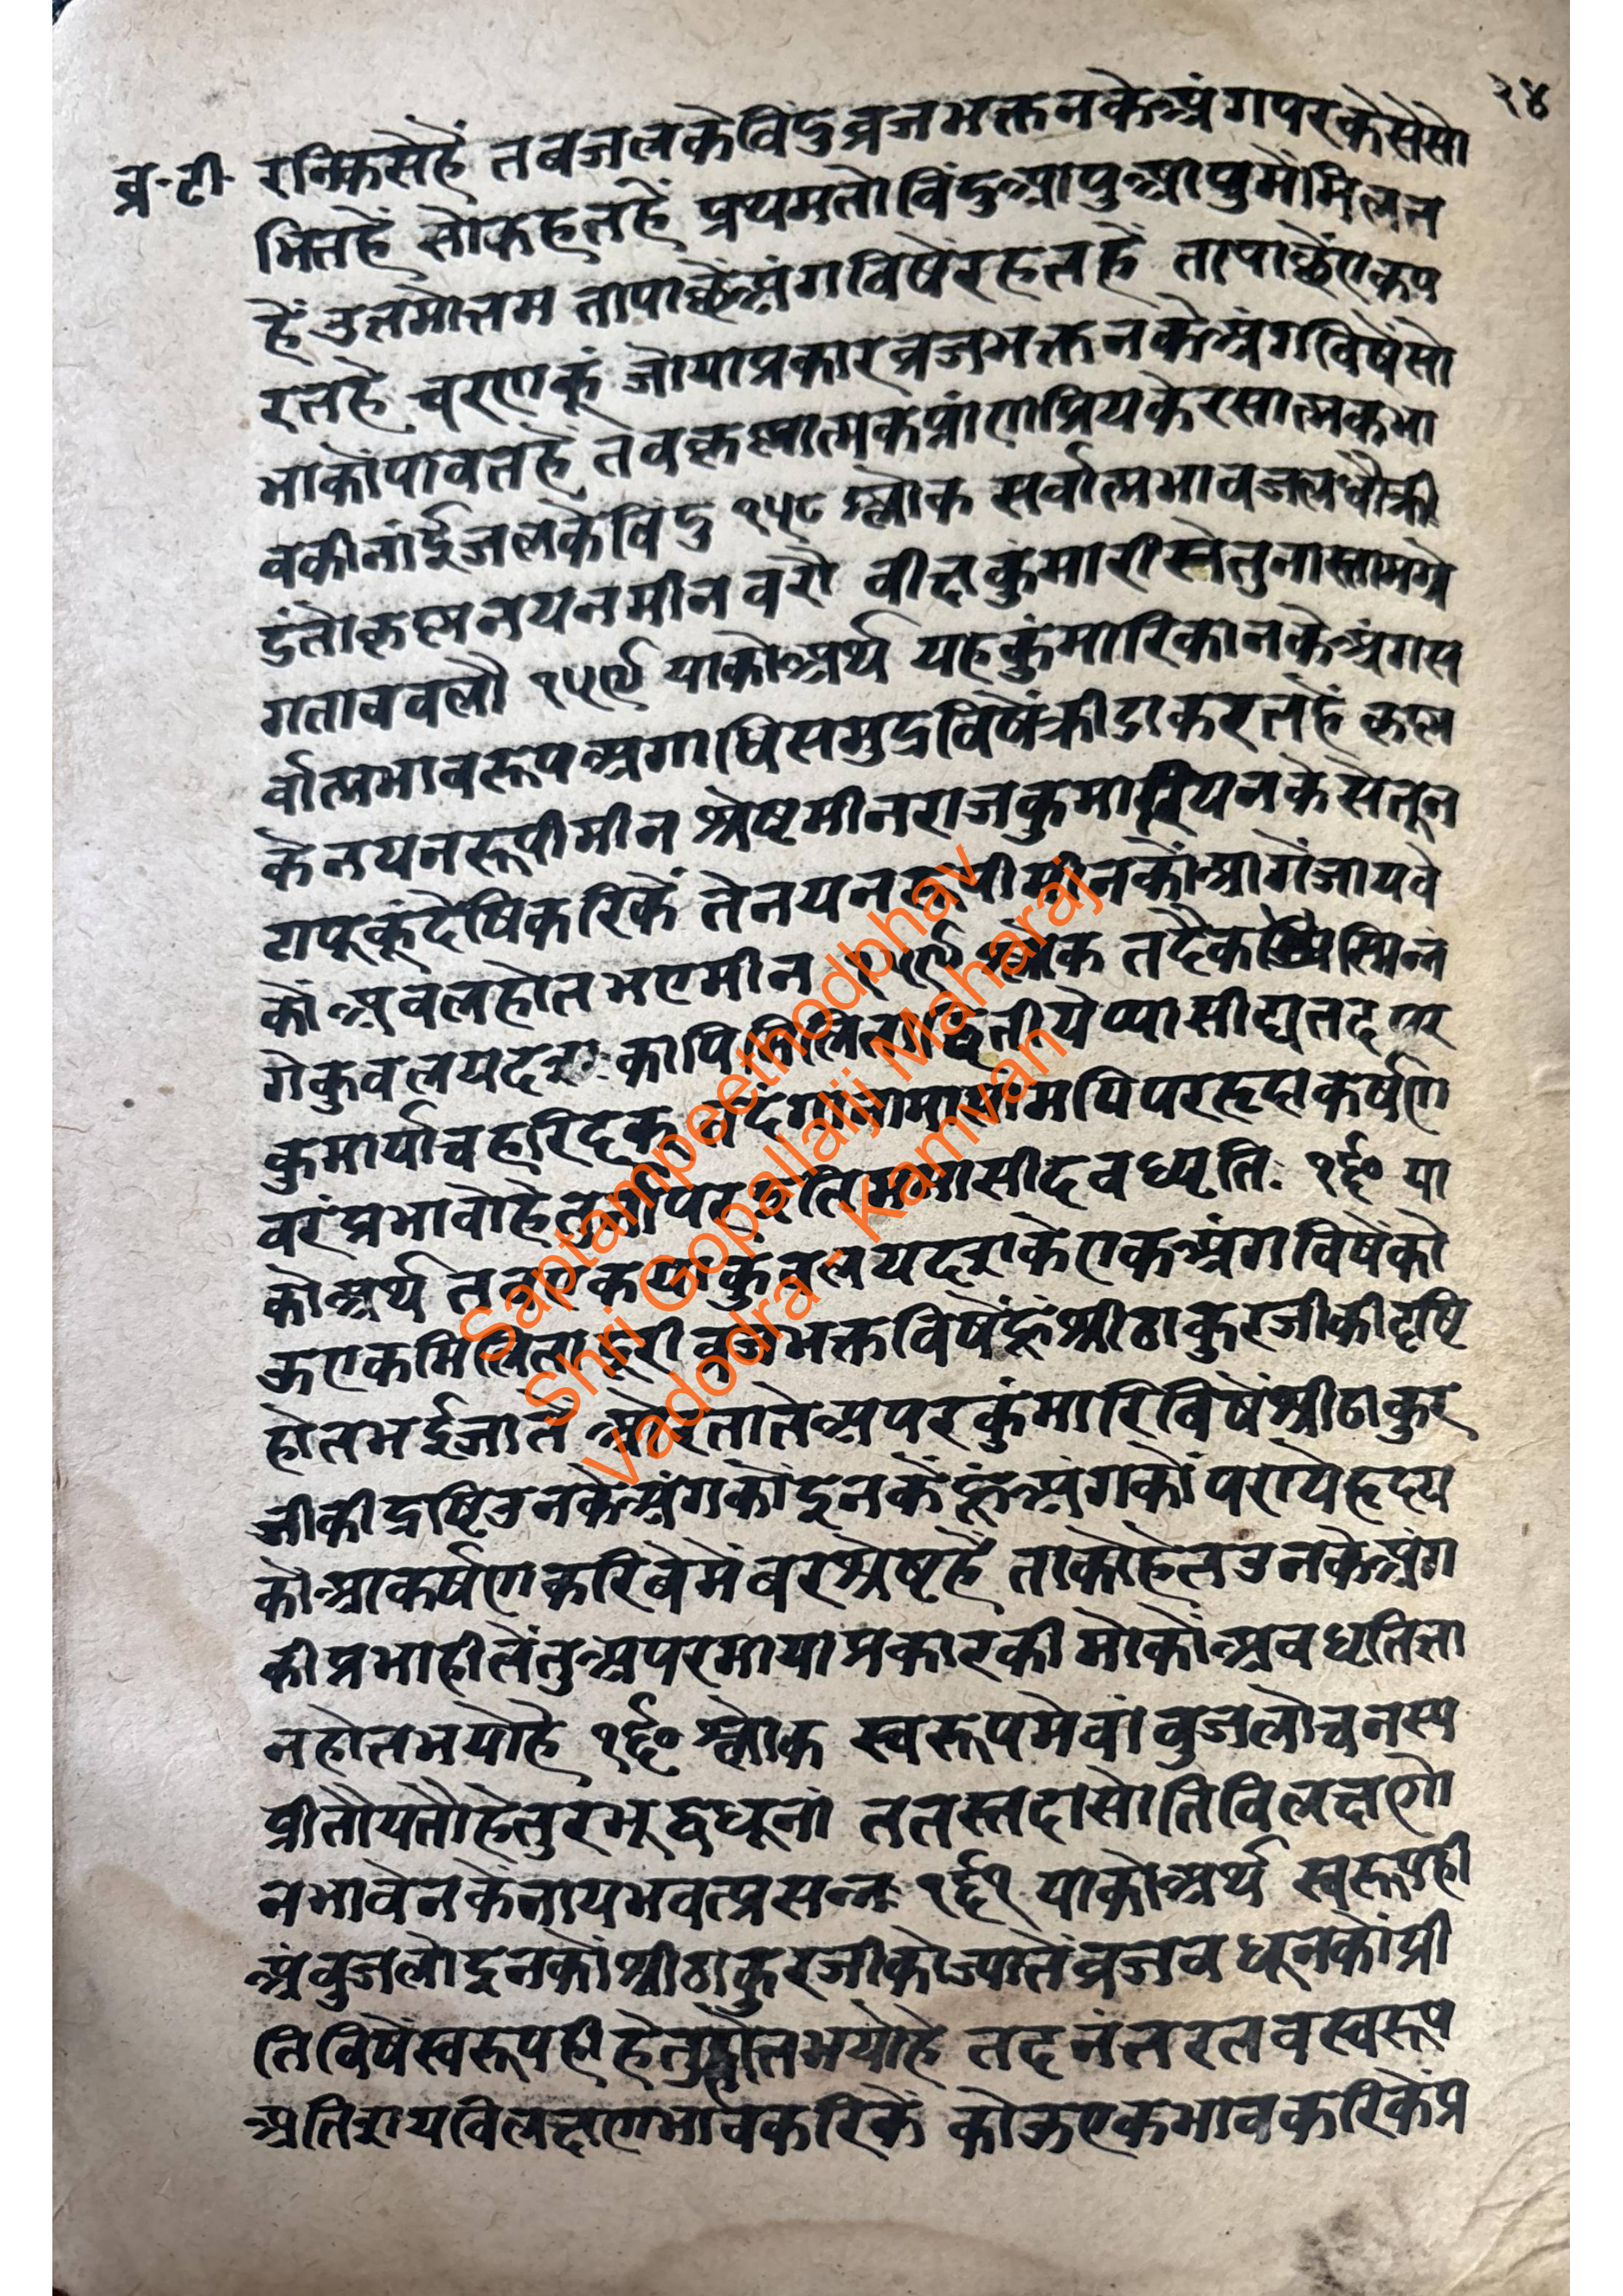 २४
व्र-टी-
रनिकसेहें तबजलकेविंदुव्रजभक्तनकेअंगपरकैसेसो
भितहें सोकहतहें प्रथमतोविंदुआपुआपुमेंमिलत
हें उतमोत्तम तापाछेंअंगविषेंरहतहें तापाछेंएकप
रतहे चरणकूं जोयाप्रकारव्रजभक्तनकेअंगविषेंसो
भाकोंपावतहें तेवकृष्णात्मकप्रांणप्रियकेरसात्मकभा
वकीनांईजलकेविंदु १५८ श्लोक सर्वात्मभावजलधौक्री
डंतौकृष्णनयनमीनवरौ वीक्षकुंमारीस्तेतुनास्तामग्रे
गतावबलौ १५९ याकोअर्थ यहकुंमारिकानकेअंगस
र्वात्मभावरूपअगाधिसमुद्रविषेंक्रीडाकरतहें कृष्ण
केनयनरूपीमीन श्रेष्टमीनराजकुमारियनकेसेतून
टापूकूंदेषिकरिकें तेनयनरूपीमीनकोंआगेंजायवे
कोंअवलहोतभएमीन १५९ श्लोक तदैकस्मिन्नं
गेकुवलयदशः कापिमिलिताद्वितीयेप्यासीद्यतदपर
कुमार्याचहरिदृक् तदंगानामासामपिपरहृदाकर्षण
वरंप्रभावोहेतुर्मेपर इतिममासीदवधृतिः १६० या
कोअर्थ तबएकयाकुवलयदशकेएकअंगविषेंको
ऊएकमिलितादूरीव्रजभक्तविषेंहूंश्रीठाकुरजीकीदृष्टि
होतभईजाते ओरतातेअपरकुंमारिविषेंश्रीठाकुर
जीकीद्रष्टिउनकेअंगकोंइनकेंहूंअंगकोंपरायेहृदय
कोआकर्षणकरिबेमेंबरश्रेष्टहै ताकोहेतउनकेअंग
कीप्रभाहीतेंतुअपरमायाप्रकारकीमोकोंअवधृतिज्ञा
नहोतभयोहै १६० श्लोक स्वरूपमेवांवुजलोचनस्य
प्रीतौयतौहेतुरभूद्वधूनां ततस्तदासोतिविलक्षणे
नभावेनकेनायभवत्प्रसन्नः १६१ याकोअर्थ स्वरूपही
अंवुजलोइनकोंश्रीठाकुरजीकोज्यातेंव्रजवधूनकोंप्री
तिविषेंस्वरूपही हेतुहोतभयोहे तदनंतरतवस्वरूप
अतिशयविलक्षणभावकरिकें कोऊएकभावकरिकेंप्र
Saptampeethodbhav
Shri Gopallalji Maharaj
Vadodra - Kamvan